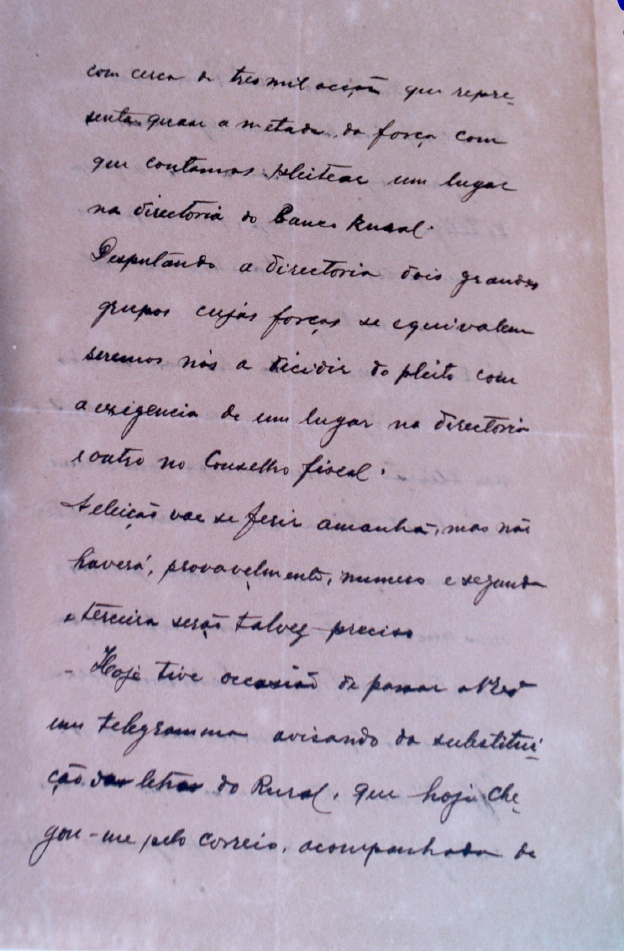 com cerca de tres mil acções que repre-
senta quase a metade da força com
que contamos pleitear um lugar
na directoria do Banco Rural.
Desputando a directoria dois grandes
grupos cujas forças se equivalem
seremos nós a dicidir do pleito com
a exigencia de um lugar na directoria
e outro no Conselho fiscal.
A eleição vae se ferir amanhã, mas não
haverá, provavelmente, numero e segunda
e terceira serão talvez preciso
- Hoje tive occasião de passar a
um telegramma avisando da substitui-
ção das letras do Rural, que hoje che-
gou-me pelo correio, acompanhada de